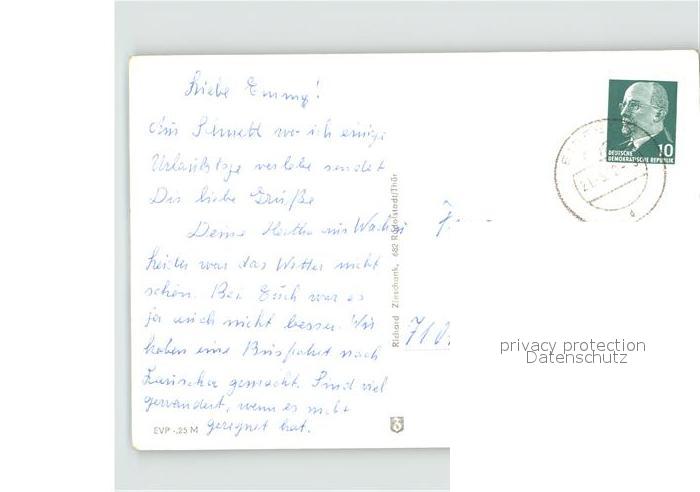 Liebe Emmy!
Aus wo ich einige
Urlaubstage verlebe sendet
Dir liebe Grüße
Deine Hertha
Leider war das Wetter nicht
schön. Bei Euch war es
ja auch nicht besser. Wir
haben eine Busfahrt nach
gemacht. Sind viel
gewandert, wenn es nicht
geregnet hat.
EVP -.25 M
Richard Zieschank, 682 Rudolstadt/Thür
10
DEUTSCHE
DEMOKRATISCHE REPUBLIK
privacy protection
Datenschutz